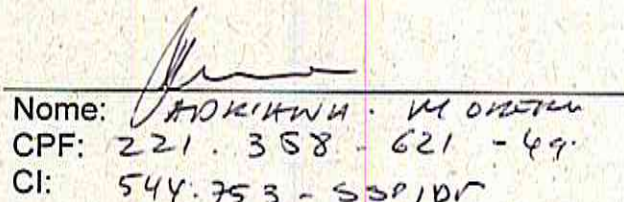 Nome: ADRIANA
CPF: 221. 358 - 621 - 49.
CI: 544.753 - SSP/DF